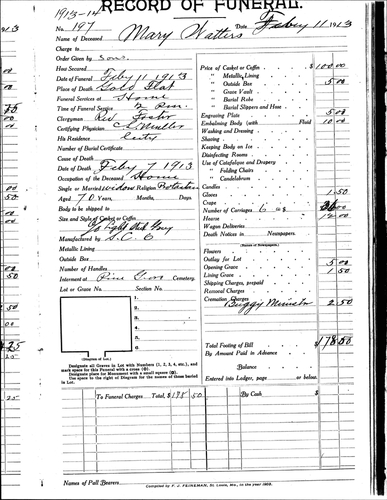 1913-14
RECORD OF FUNERAL.
No. 197
Date Feby 11 1913
Name of Deceased Mary Watters
Charge to
Order Given by Sons
How Secured
Date of Funeral Feby 11 1913
Place of Death Gold Flat
Funeral Services at Home
Time of Funeral Service 2 P.M.
Clergyman Rev Foster
Certifying Physician C. Muller
His Residence City
Number of Burial Certificate
Cause of Death
Date of Death Feby 7 1913
Occupation of the Deceased Home
Single or Married widow Religion Protestan
Aged 70 Years, Months, Days.
Body to be shipped to
Size and Style of Casket or Coffin
Manufactured by
Metallic Lining
Outside Box
Number of Handles
Interment at Pine Grove Cemetery
Lot or Grave No. Section No.
1.
2.
3.
4.
5.
6.
(Diagram of Lot.)
Designate all Graves in Lot with Numbers (1, 2, 3, 4, etc.), and
mark space for this Funeral with a cross (⊗).
Designate place for Monument with a small square (⊠).
Use space to the right of Diagram for the names of those buried
in Lot.
Price of Casket or Coffin $100.00
" Metallic Lining
" Outside Box 5.00
" Grave Vault
" Burial Robe
" Burial Slippers and Hose
Engraving Plate 5.00
Embalming Body with Fluid 10.00
Washing and Dressing
Shaving
Keeping Body on Ice
Disinfecting Rooms
Use of Catafalque and Drapery
" Folding Chairs
" Candelabrum
Candles
Gloves 1.50
Crape
Number of Carriages 6 36.00
Hearse 12.00
Wagon Deliveries
Death Notices in Newspapers.
(Names of Newspapers)
Flowers
Outlay for Lot
Opening Grave 5.00
Lining Grave 1.50
Shipping Charges, prepaid
Removal Charges
Cremation Charges
Buggy Minister 2.50
Total Footing of Bill $178.50
By Amount Paid in Advance
Balance
Entered into Ledger, page or below.
To Funeral Charges Total, $178 50
By Cash
Names of Pall Bearers
Compiled by F. J. FEINEMAN, St. Louis, Mo., in the year 1909.